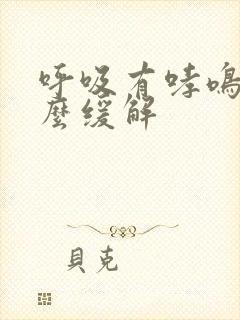 呼吸有哮鳴
麼緩解
貝克